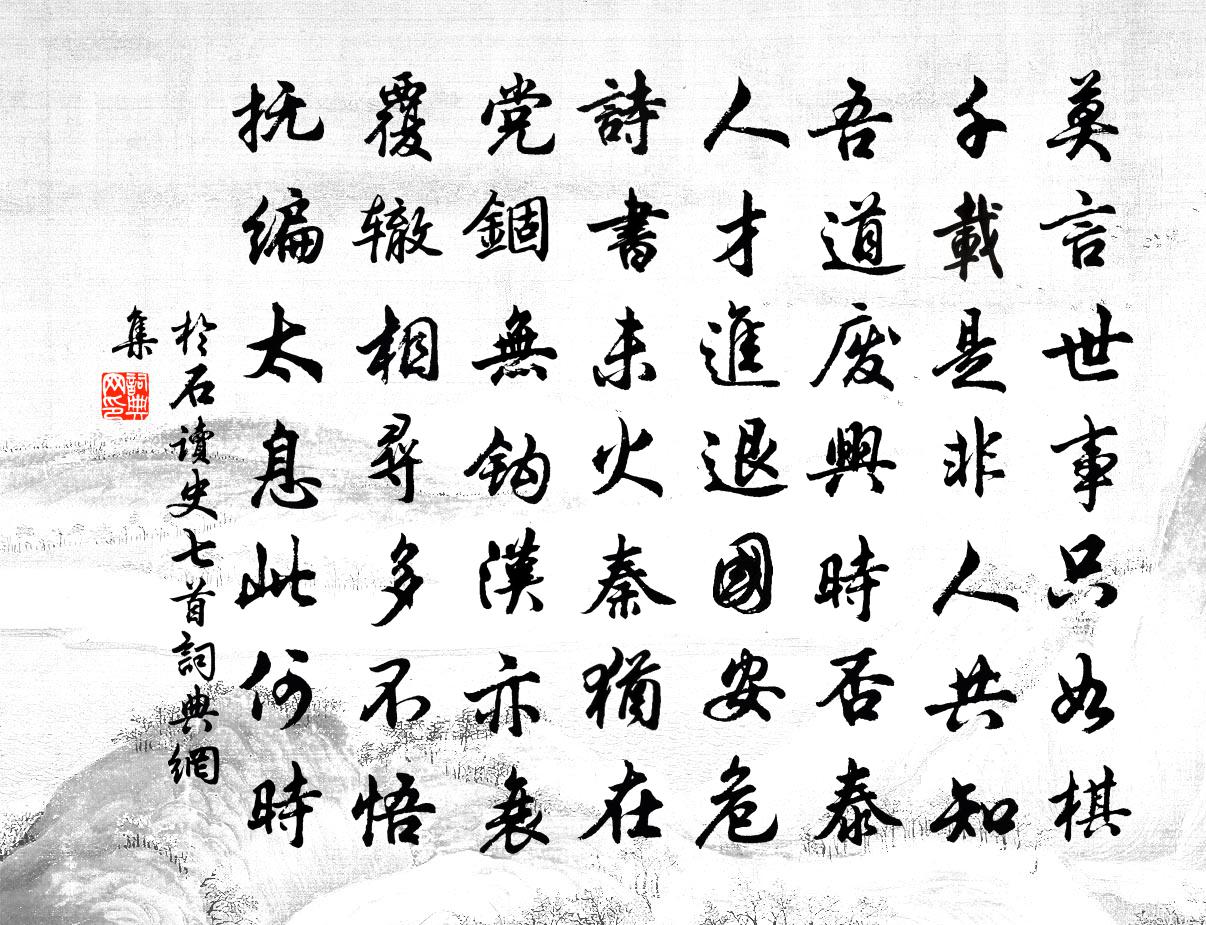 莫言世事只如棋
千載是非人共知
吾道废興時否泰
人才進退國安危
詩書未火秦猶在
党錮無钩漢亦衰
覆辙相尋多不悟
抚编太息此何時
於石讀史七首詞典網
集
詞典网印